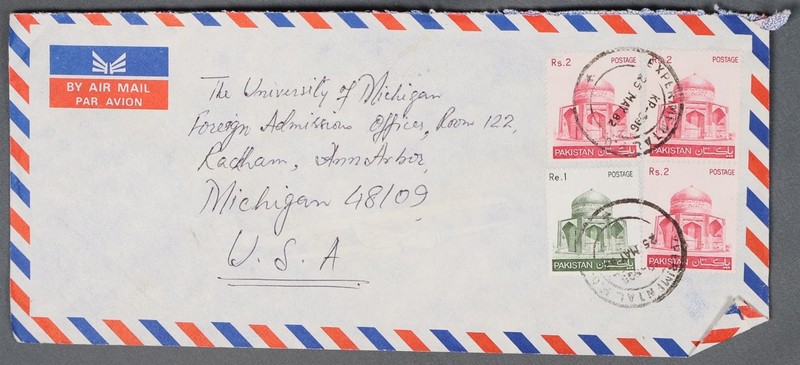 BY AIR MAIL
PAR AVION
The University of Michigan
Foreign Admissions Offices, Room 122,
Radham, Ann Arbor,
Michigan 48109
U. S. A
Rs.2 POSTAGE
PAKISTAN پاکستان
Rs.2 POSTAGE
PAKISTAN پاکستان
Re.1 POSTAGE
PAKISTAN پاکستان
Rs.2 POSTAGE
PAKISTAN پاکستان
EXPERIMENTAL
25 MAY 82
25 MAY